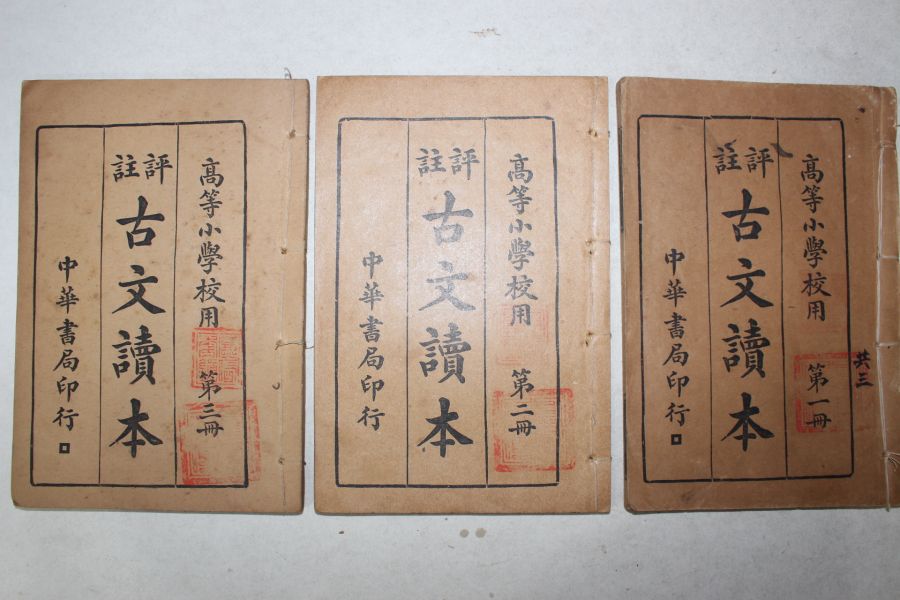 高等小學校用 第三冊
評註
古文讀本
中華書局印行
高等小學校用 第二冊
評註
古文讀本
中華書局印行
共三
高等小學校用 第一冊
評註
古文讀本
中華書局印行